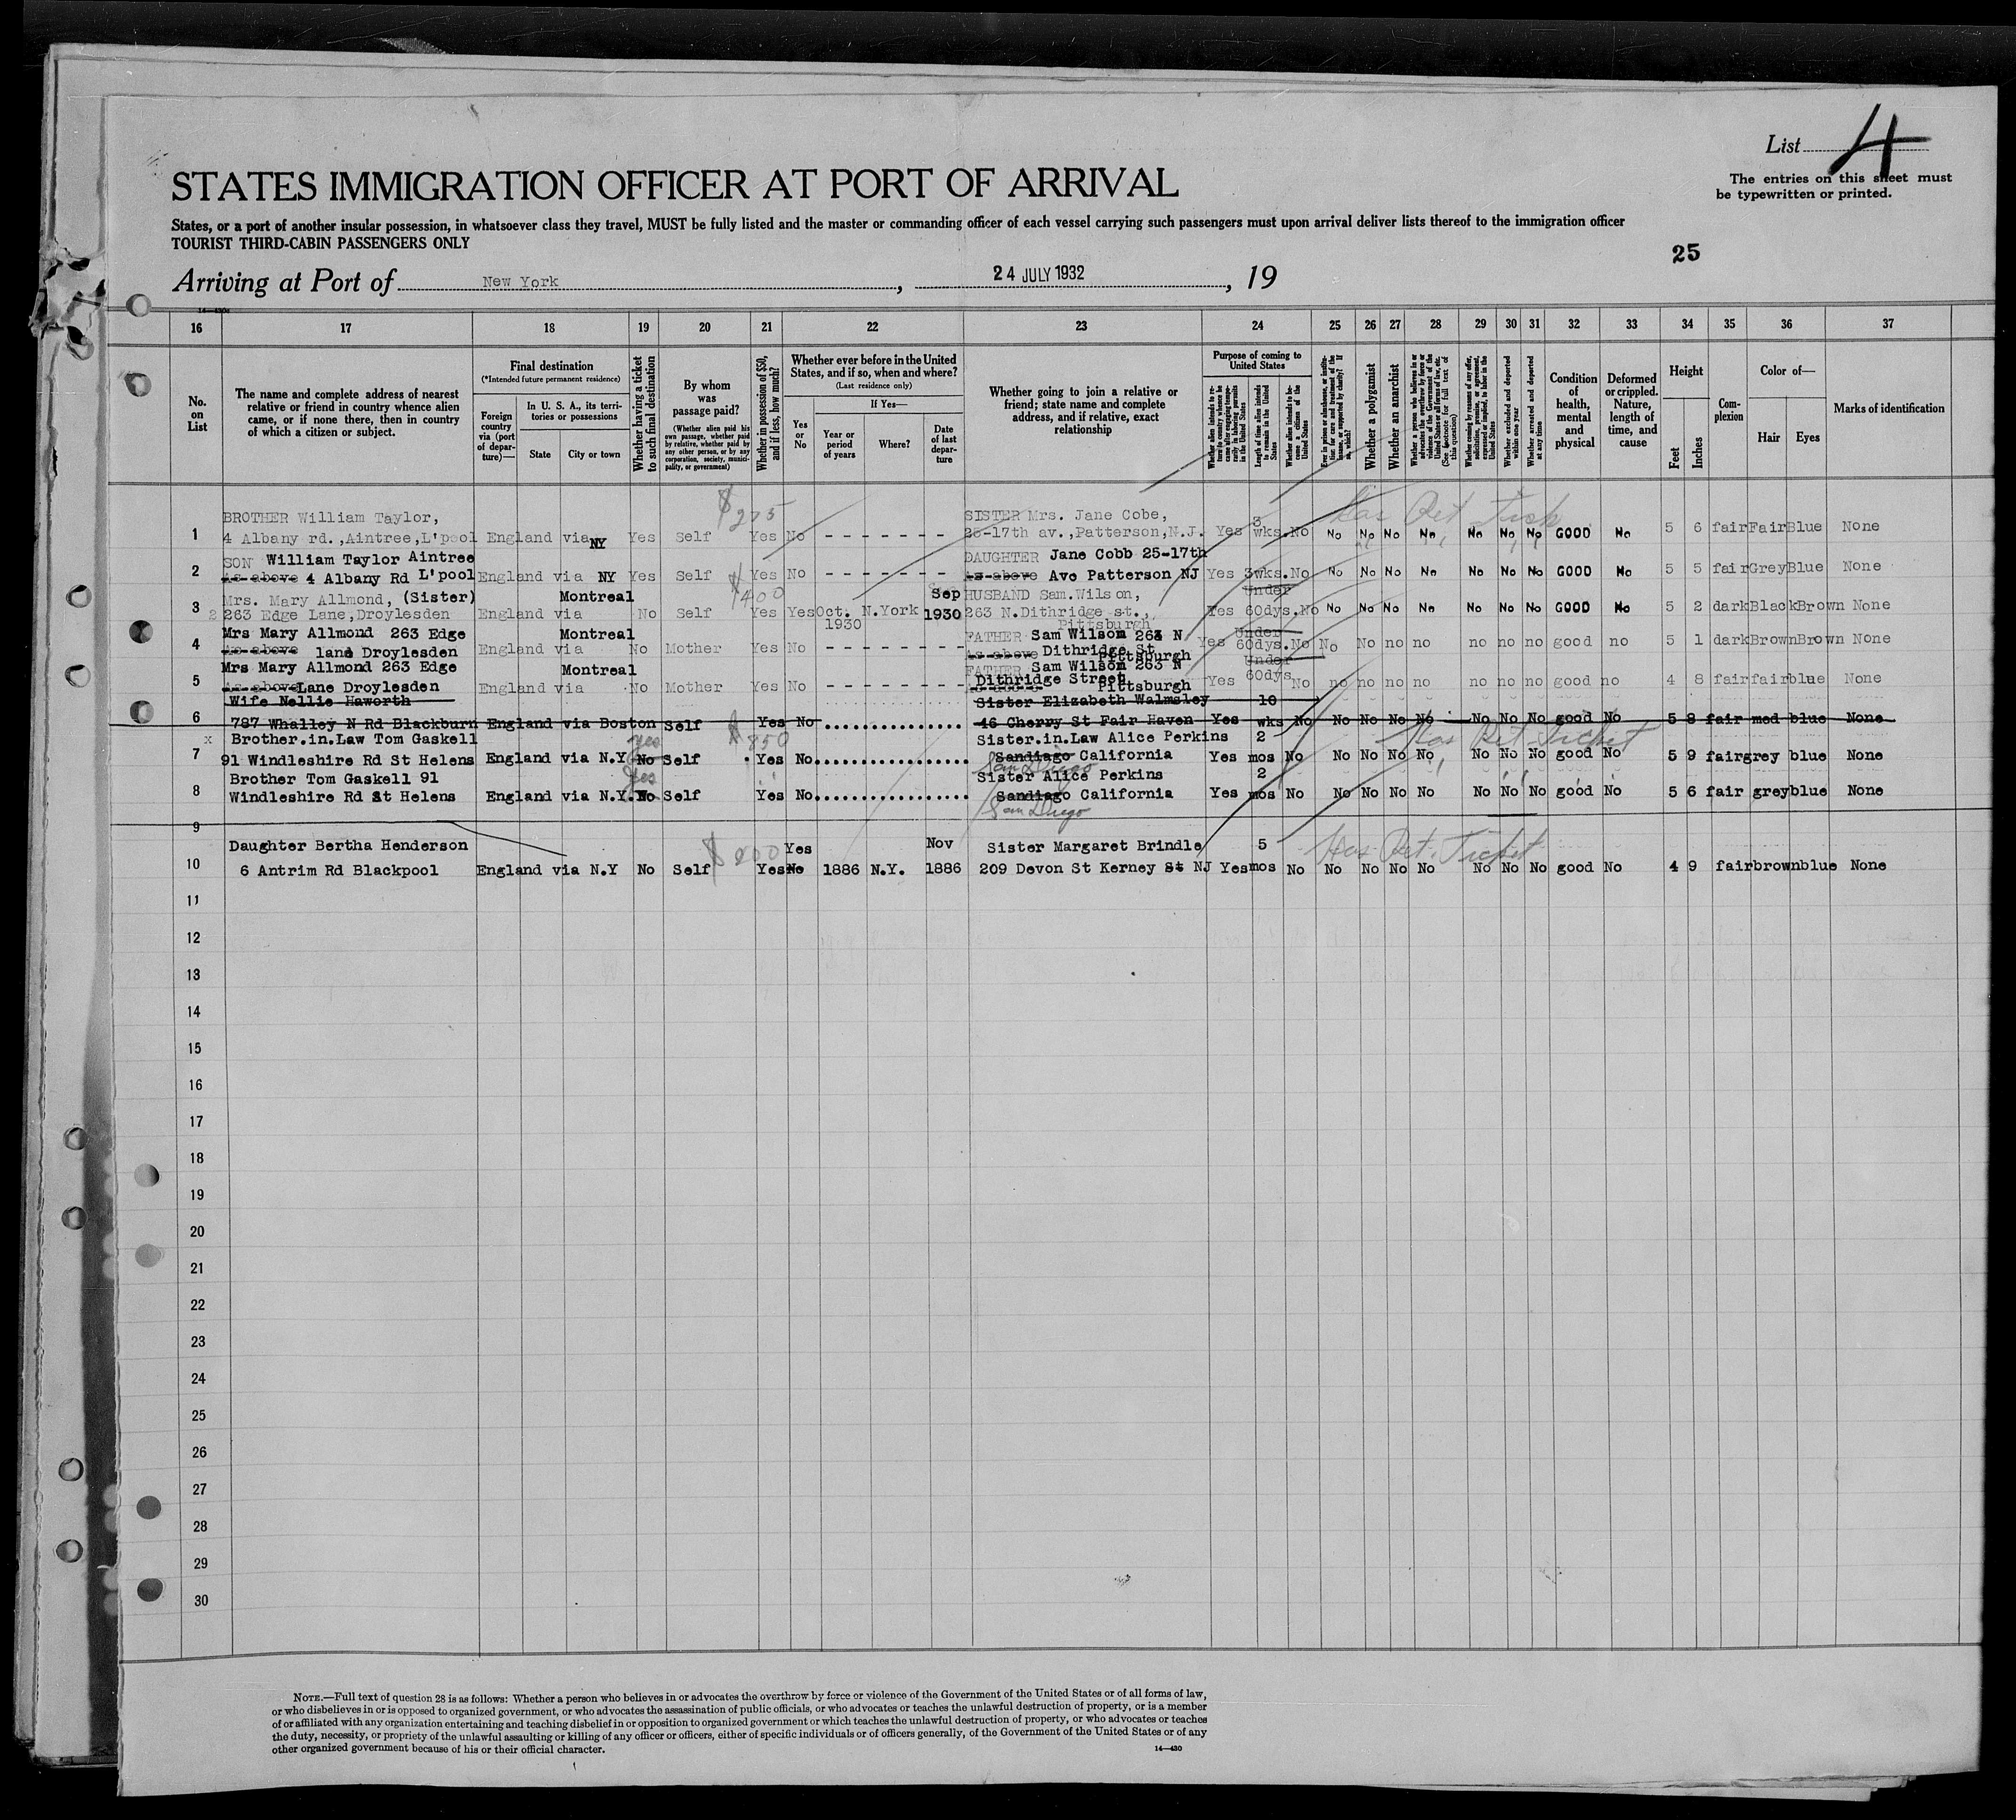 List 4
The entries on this sheet must
be typewritten or printed.
STATES IMMIGRATION OFFICER AT PORT OF ARRIVAL
States, or a port of another insular possession, in whatsoever class they travel, MUST be fully listed and the master or commanding officer of each vessel carrying such passengers must upon arrival deliver lists thereof to the immigration officer
TOURIST THIRD-CABIN PASSENGERS ONLY
25
Arriving at Port of New York, 24 JULY 1932, 19
16 17 18 19 20 21 22 23 24 25 26 27 28 29 30 31 32 33 34 35 36 37
No. on List
The name and complete address of nearest relative or friend in country whence alien came, or if none there, then in country of which a citizen or subject.
Final destination
(*Intended future permanent residence)
Foreign country via (port of departure)—
In U. S. A., its territories or possessions
State
City or town
Whether having a ticket to such final destination
By whom was passage paid?
(Whether alien paid his own passage, whether paid by relative, whether paid by any other person, or by any corporation, society, municipality, or government)
Whether in possession of $50, and if less, how much?
Whether ever before in the United States, and if so, when and where?
(Last residence only)
Yes or No
If Yes—
Year or period of years
Where?
Date of last departure
Whether going to join a relative or friend; state name and complete address, and if relative, exact relationship
Purpose of coming to United States
Length of time alien intends to remain in the United States
Whether alien intends to become a citizen of the United States
Whether a polygamist
Whether an anarchist
Whether excluded and deported within one year
Whether arrested and deported at any time
Condition of health, mental and physical
Deformed or crippled. Nature, length of time, and cause
Height
Feet
Inches
Complexion
Color of—
Hair
Eyes
Marks of identification
$275
Has Ret Tick
BROTHER William Taylor, SISTER Mrs. Jane Cobe, 3
1 4 Albany rd.,Aintree,L'pool England via NY Yes Self Yes No - - - - - - - 25-17th av.,Patterson,N.J. Yes wks. No No No No No No No No GOOD No 5 6 fair Fair Blue None
SON William Taylor Aintree DAUGHTER Jane Cobb 25-17th
2 As above 4 Albany Rd L'pool England via NY Yes Self Yes No - - - - - - - As above Ave Patterson NJ Yes 3wks. No No No No No No No No GOOD No 5 5 fair Grey Blue None
$400
Mrs. Mary Allmond, (Sister) Montreal Sep HUSBAND Sam.Wilson, Under
3 2 263 Edge Lane,Droylesden England via No Self Yes Yes Oct. 1930 N.York 1930 263 N.Dithridge st., Pittsburgh Yes 60dys. No No No No No No No No GOOD No 5 2 dark Black Brown None
Mrs Mary Allmond 263 Edge Montreal FATHER Sam Wilson 263 N Under
4 As above lane Droylesden England via No Mother Yes No - - - - - - - As above Dithridge St Pittsburgh Yes 60dys. No No No no no no no no good no 5 1 dark Brown Brown None
Mrs Mary Allmond 263 Edge Montreal FATHER Sam Wilson 263 N Under
5 As above Lane Droylesden England via No Mother Yes No - - - - - - - Dithridge Street Pittsburgh Yes 60dys No no no no no no no no good no 4 8 fair fair blue None
Wife Nellie Haworth Sister Elizabeth Walmsley 10
6 787 Whalley N Rd Blackburn England via Boston Self Yes No 46 Cherry St Fair Haven Yes wks No No No No No No No No good No 5 8 fair med blue None
x Brother.in.Law Tom Gaskell yes $850 Sister.in.Law Alice Perkins 2 Has Ret Ticket
7 91 Windleshire Rd St Helens England via N.Y No Self Yes No Sandiago California Yes mos No No No No No No No No good No 5 9 fair grey blue None
San Diego
Brother Tom Gaskell 91 yes Sister Alice Perkins 2
8 Windleshire Rd St Helens England via N.Y. No Self Yes No Sandiago California Yes mos No No No No No No No No good No 5 6 fair grey blue None
San Diego
9
Daughter Bertha Henderson $200 Yes Nov Sister Margaret Brindle 5 Has Ret. Ticket
10 6 Antrim Rd Blackpool England via N.Y No Self Yes No 1886 N.Y. 1886 209 Devon St Kerney St NJ Yes mos No No No No No No No No good No 4 9 fair brown blue None
11
12
13
14
15
16
17
18
19
20
21
22
23
24
25
26
27
28
29
30
NOTE.—Full text of question 28 is as follows: Whether a person who believes in or advocates the overthrow by force or violence of the Government of the United States or of all forms of law,
or who disbelieves in or is opposed to organized government, or who advocates the assassination of public officials, or who advocates or teaches the unlawful destruction of property, or is a member
of or affiliated with any organization entertaining and teaching disbelief in or opposition to organized government or which teaches the unlawful destruction of property, or who advocates or teaches
the duty, necessity, or propriety of the unlawful assaulting or killing of any officer or officers, either of specific individuals or of officers generally, of the Government of the United States or of any
other organized government because of his or their official character.
14—430